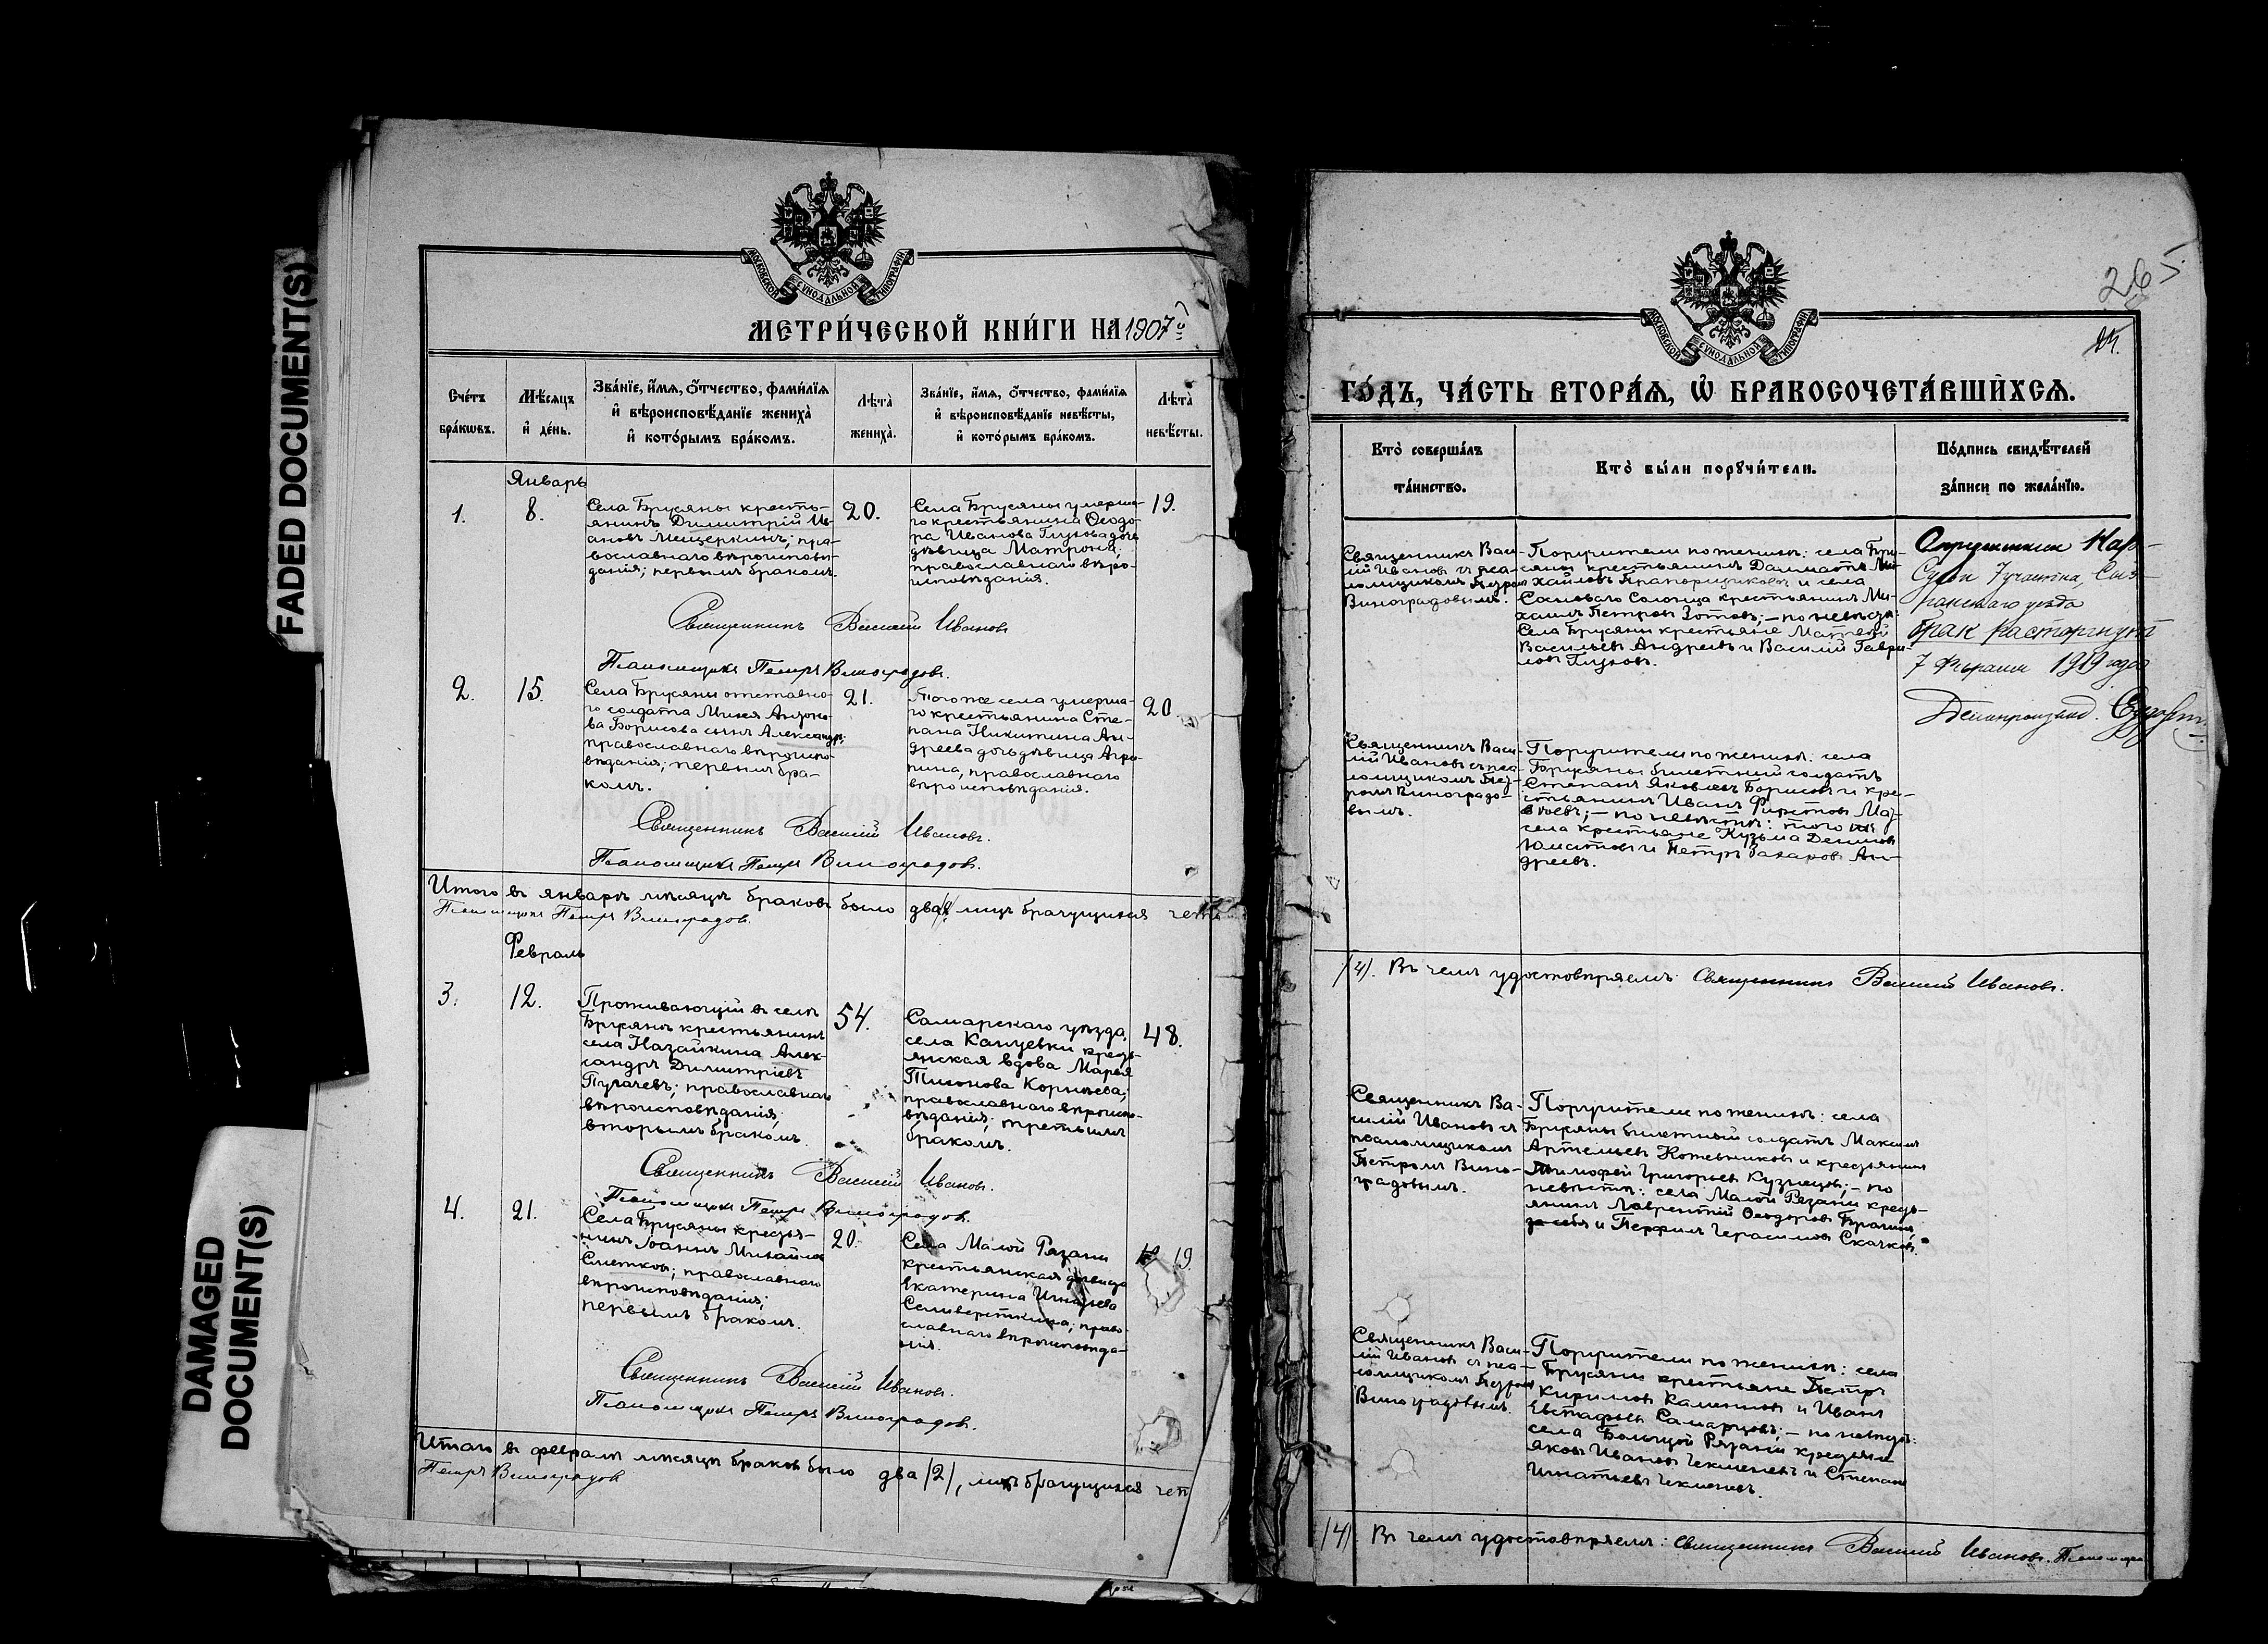 FADED DOCUMENT(S)
DAMAGED
DOCUMENT(S)
МОСКОВСКОЙ СѴНОДАЛЬНОЙ ТИПОГРАФІИ
МЕТРИ́ЧЕСКОЙ КНИ́ГИ НА 1907й
Сче́тъ
бра́ковъ.
Мѣ́сяцъ
и де́нь.
Зва́нїе, и́мя, ѻ҆́тчество, фами́лїя
и҆ вѣроисповѣ́данїе жениха̀
и҆ кото́рымъ бра́комъ.
Лѣ́та
жениха̀.
Зва́нїе, и́мя, ѻ҆́тчество, фами́лїя
и҆ вѣроисповѣ́данїе невѣ́сты,
и҆ кото́рымъ бра́комъ.
Лѣ́та
невѣ́сты.
Январь
1.
8.
Села Брусяны кресть-
янинъ Димитрій Ив-
ановъ Мещеркинъ; пра-
вославнаго вѣроисповѣ-
данія; первымъ бракомъ.
20.
Села Брусяны умерша-
го крестьянина Ѳеодо-
ра Иванова Глухова дочь
дѣвица Матрона,
православнаго вѣро-
исповѣданія.
19.
Священникъ Василій Ивановъ
Псаломщикъ Петръ Виноградовъ.
2.
15.
Села Брусяны отставно-
го солдата Михея Антоно-
ва Борисова сынъ Александръ;
православнаго вѣроиспо-
вѣданія; первымъ бра-
комъ.
21.
Того же села умерша-
го крестьянина Сте-
пана Никитина Ан-
дреева дочь дѣвица Агри-
пина, православнаго
вѣроисповѣданія.
20
Священникъ Василій Ивановъ.
Псаломщикъ Петръ Виноградовъ.
Итого въ январѣ мѣсяцѣ браковъ было два /2/ лицъ брачущихся чет
Псаломщикъ Петръ Виноградовъ.
Февраль
3.
12.
Проживающій въ селѣ
Брусянѣ крестьянинъ
села Назайкина Алек-
сандръ Димитріевъ
Пугачевъ; православнаго
вѣроисповѣданія;
вторымъ бракомъ.
54.
Самарскаго уѣзда,
села Кануевки кресть-
янская вдова Марья
Тихонова Корнѣева;
православнаго вѣроиспо-
вѣданія; третьимъ
бракомъ.
48.
Священникъ Василій Ивановъ.
Псаломщикъ Петръ Виноградовъ.
4.
21.
Села Брусяны крестья-
нинъ Іоаннъ Михайловъ
Сметковъ; православнаго
вѣроисповѣданія;
первымъ бракомъ.
20.
Села Малой Рязани
крестьянская дѣвица
Екатерина Игнатьева
Селиверсткина; право-
славнаго вѣроисповѣда-
нія.
19.
Священникъ Василій Ивановъ.
Псаломщикъ Петръ Виноградовъ.
Итого въ февралѣ мѣсяцѣ браковъ было два /2/, лицъ брачущихся чет
Петръ Виноградовъ
265
МОСКОВСКОЙ СѴНОДАЛЬНОЙ ТИПОГРАФІИ
ГО́ДЪ, ЧА́СТЬ ВТОРА́Я, Ѡ҆ БРАКОСОЧЕТА́ВШИХСЯ.
Кто̀ соверша́лъ
та́инство.
Кто̀ бы́ли поручи́тели.
По́дпись свидѣ́телей
за́писи по жела́нїю.
Священникъ Васи-
лій Ивановъ съ пса-
ломщикомъ Петромъ
Виноградовымъ.
Поручители по женихѣ: села Бру-
сяны крестьянинъ Далматъ Ми-
хайловъ Прапорщиковъ и села
Сосноваго Солонца крестьянинъ Ми-
хаилъ Петровъ Зотовъ; – по невѣстѣ:
Села Брусяны крестьяне Матвѣй
Васильевъ Андреевъ и Василій Гаври-
ловъ Глуховъ.
Определением Нар-
Судом 7 участка, Сыз-
ранскаго уезда
брак расторгнут
7 Февраля 1919 года
Делопроизвод.
Священникъ Васи-
лій Ивановъ съ пса-
ломщикомъ Пет-
ромъ Виноградо-
вымъ.
Поручители по женихѣ: села
Брусяны билетный солдатъ
Степанъ Яковлевъ Борисовъ и кре-
стьянинъ Иванъ Фирстовъ
по невѣстѣ: того же
села крестьяне Кузьма Денисовъ
и Петръ Захаровъ Ан-
дреевъ.
/4/. Въ чемъ удостовѣряемъ: Священникъ Василій Ивановъ.
Священникъ Ва-
силій Ивановъ съ
псаломщикомъ
Петромъ Вино-
градовымъ.
Поручители по женихѣ: села
Брусяны билетный солдатъ Максимъ
Артемьевъ Кожевниковъ и крестьянинъ
Тимофей Григорьевъ Кузнецовъ; – по
невѣстѣ: села Малой Рязани кресть-
янинъ Лаврентій Ѳеодоровъ
за себя и Перфилъ Герасимовъ Скачковъ.
Священникъ Васи-
лій Ивановъ съ пса-
ломщикомъ Петромъ
Виноградовымъ.
Поручители по женихѣ: села
Брусяны крестьяне Петръ
Кириловъ Каленковъ и Иванъ
Евстафьевъ Самарцовъ; – по невѣстѣ:
села Большой Рязани крестьяне
Яковъ Ивановъ Чекменевъ и Степанъ
Игнатьевъ Чекменевъ.
/4/. Въ чемъ удостовѣряемъ: Священникъ Василій Ивановъ. Псаломщикъ